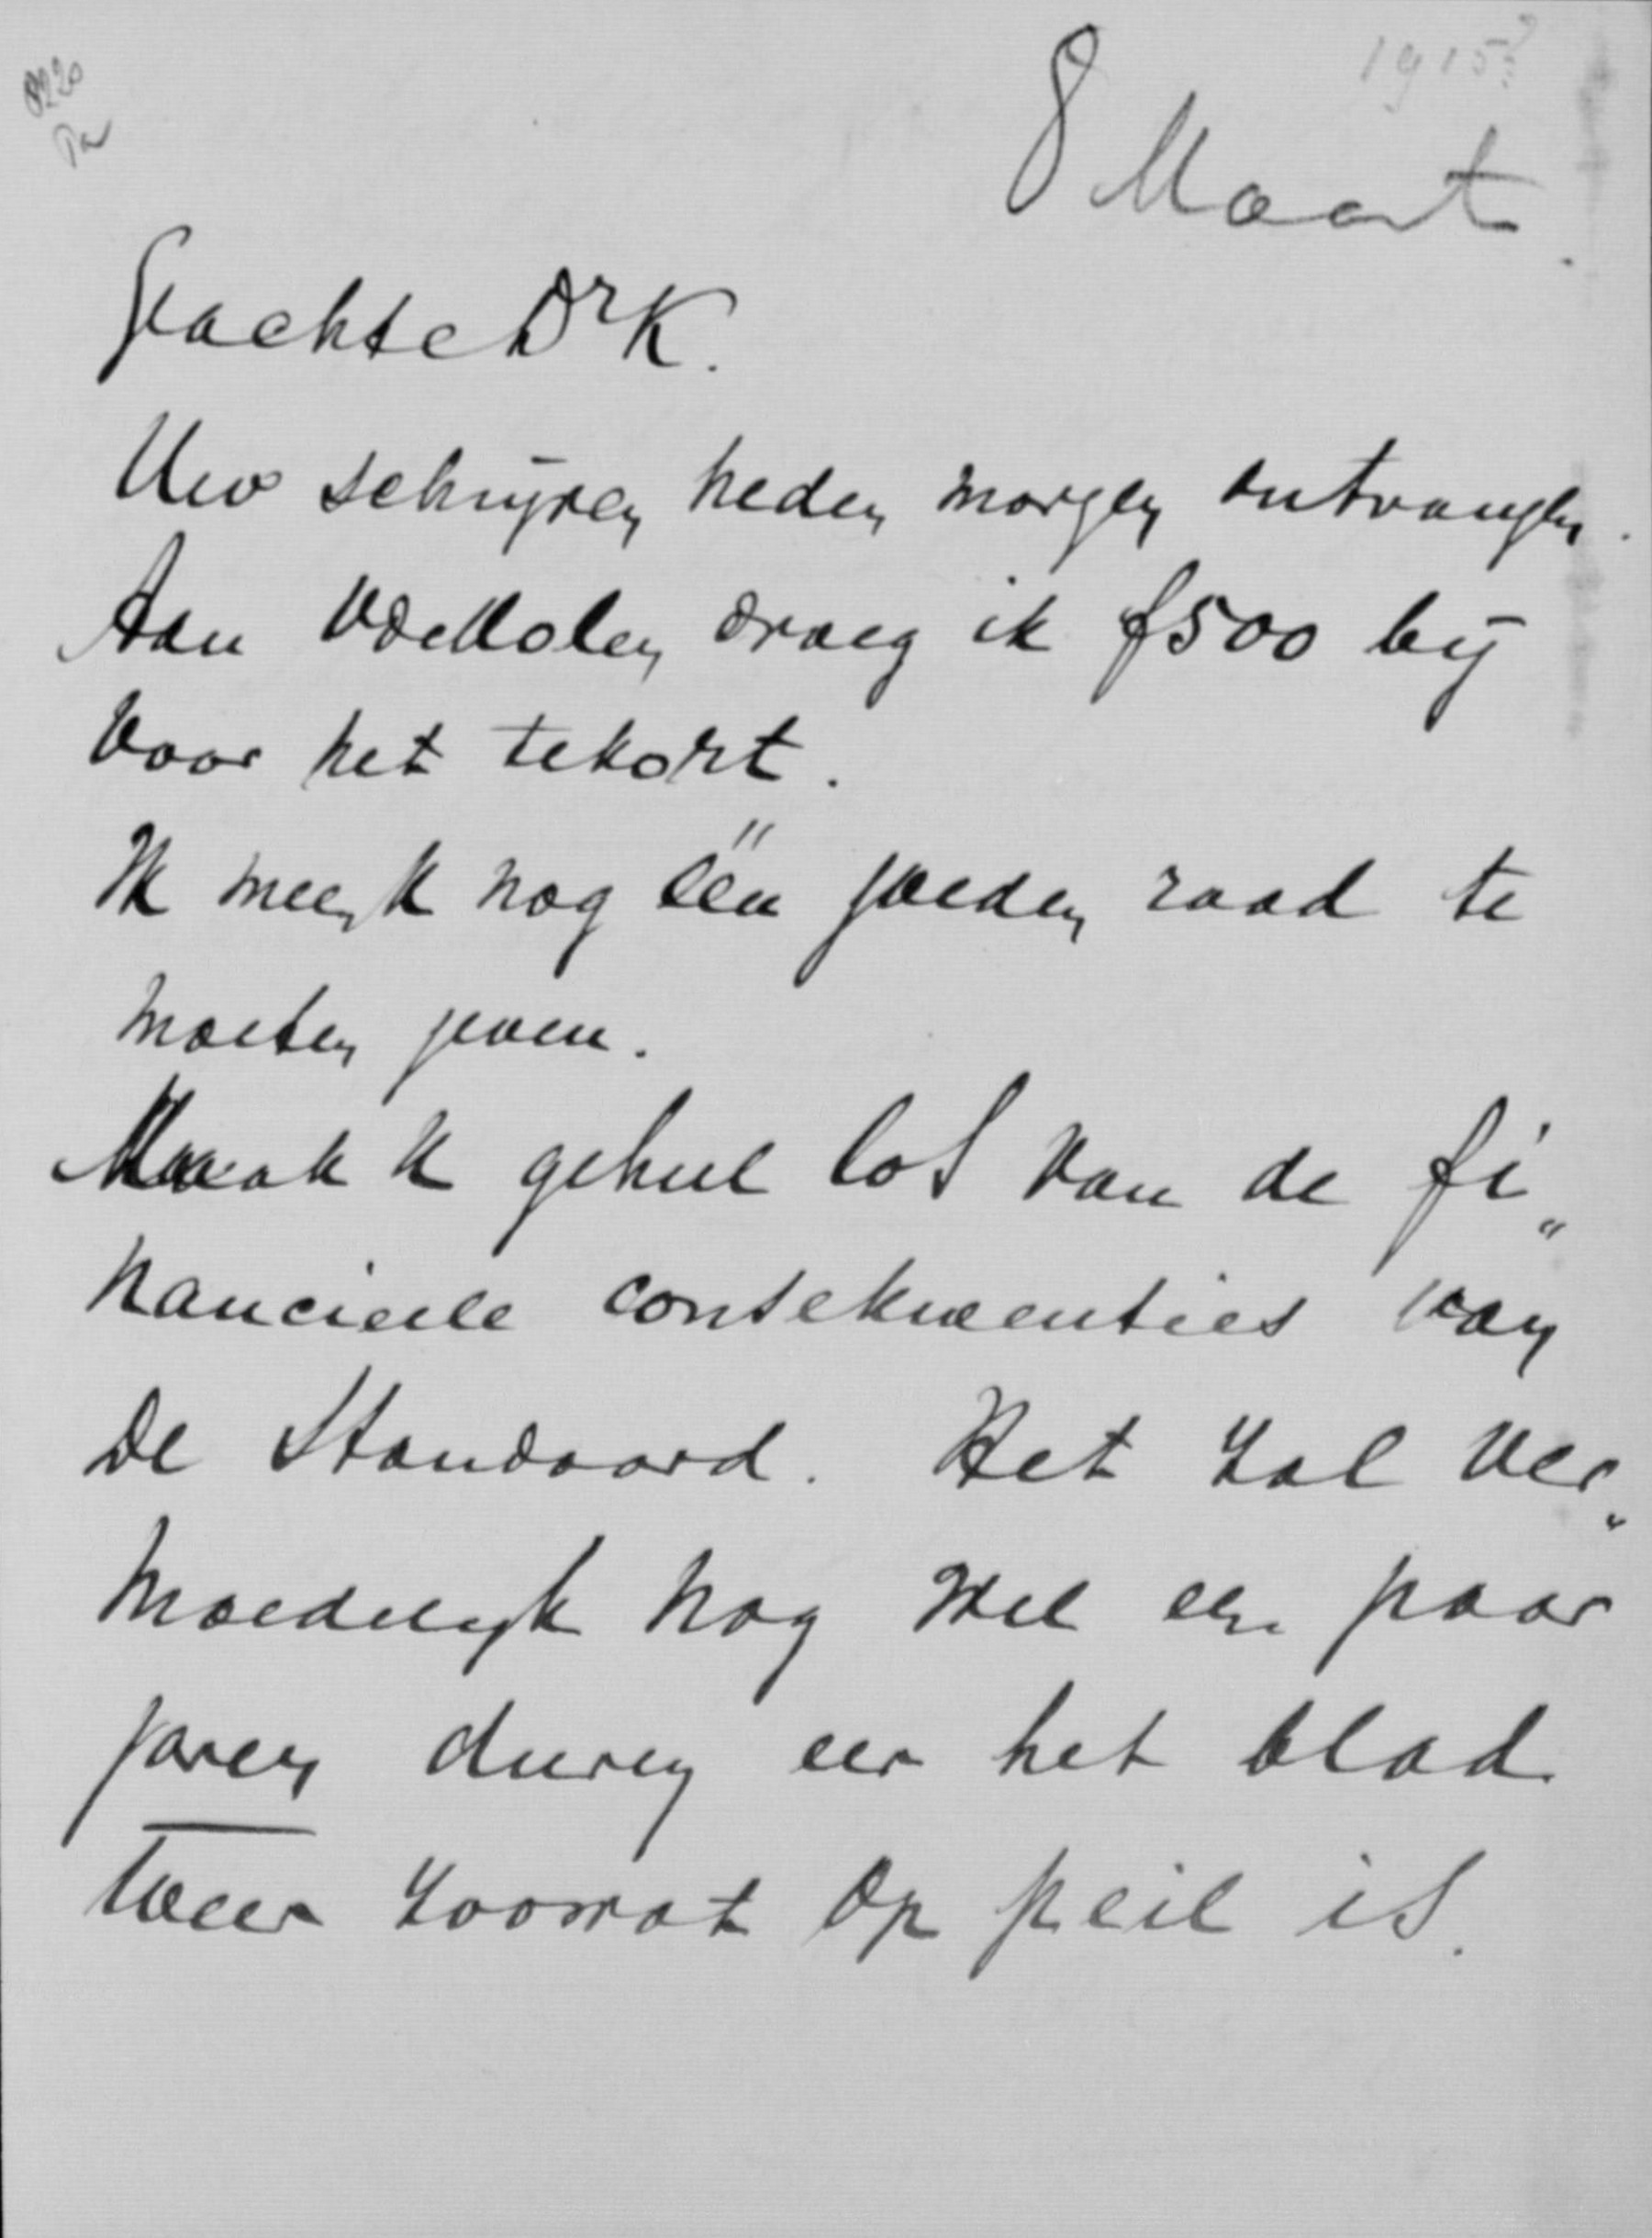 1915?
8220
8 Maart.
Geachte Dr K.
Uw schrijven heden morgen ontvangen.
Aan vdMolen draag ik f500 bij
voor het tekort.
Ik meen U nog één goeden raad te
moeten geven.
Maak U geheel los van de fi„
nancieele consekwenties van
De Standaard. Het zal ver„
moedelijk nog wel een paar
jaren duren eer het blad
weer zoowat op peil is.